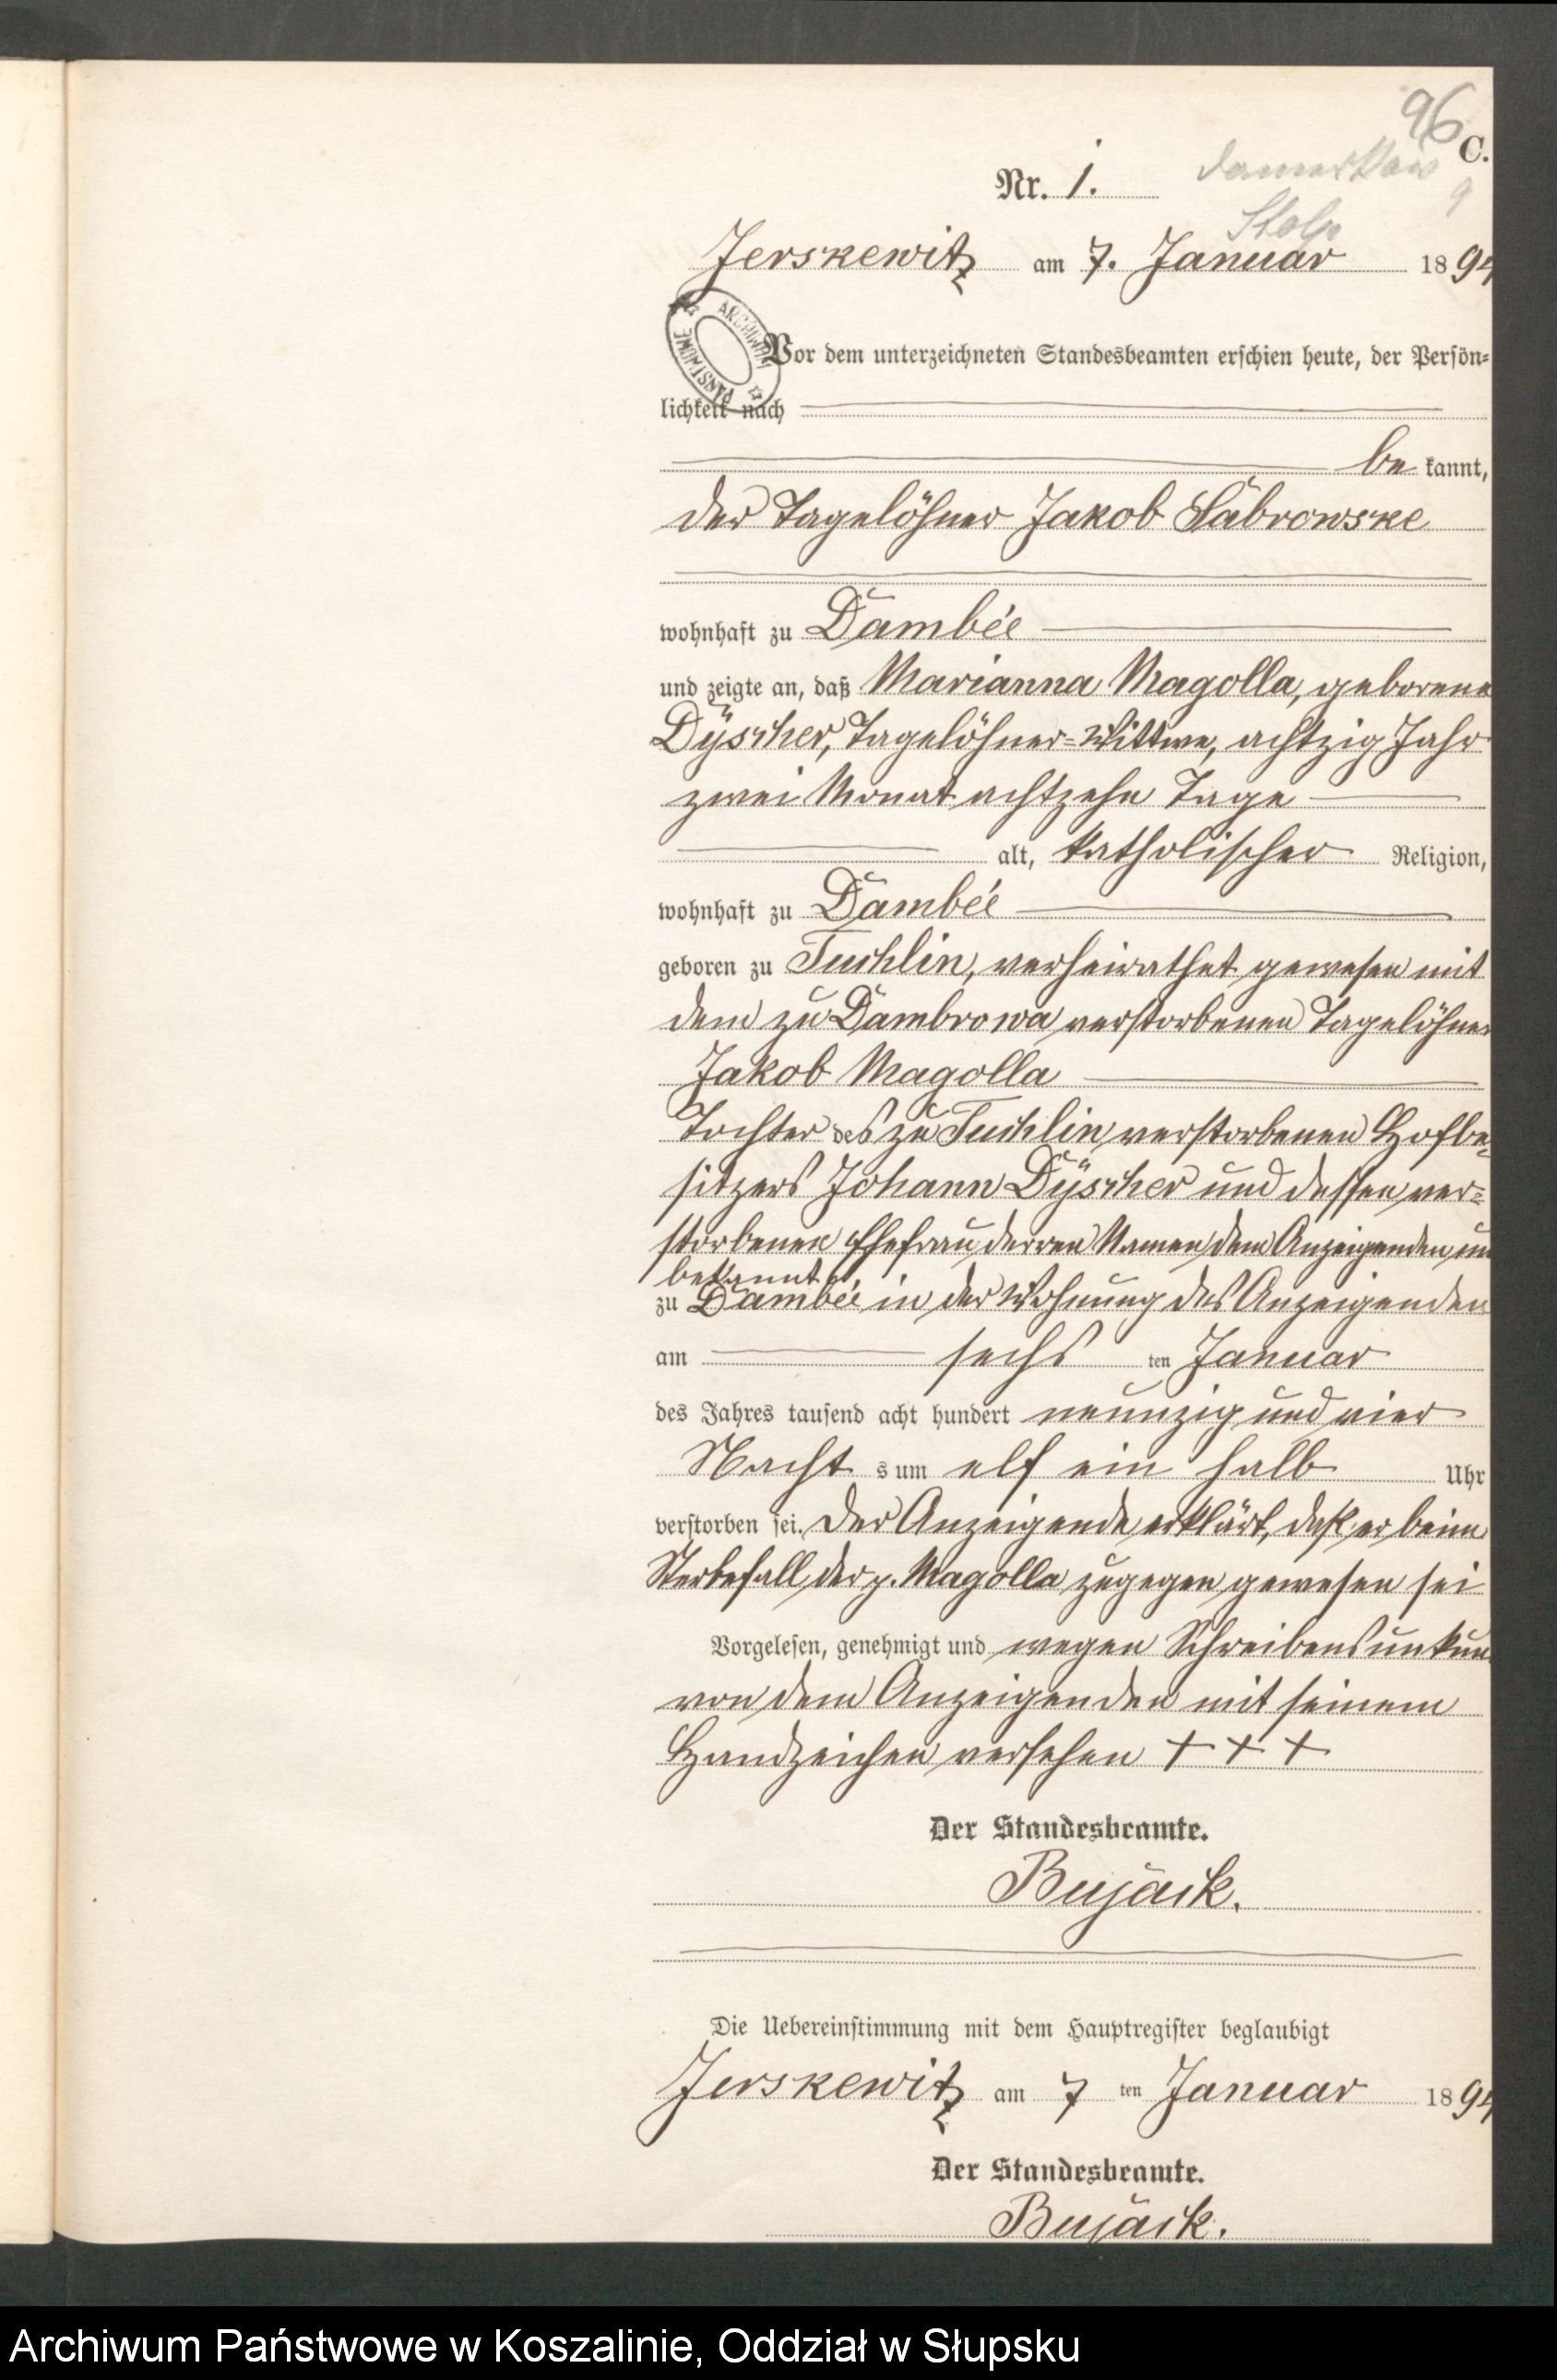 96
C.
Nr. 1.
Damerkow
9
Stolp
Jerskewitz am 7. Januar 1894
ARCHIWUM PAŃSTWOWE
Vor dem unterzeichneten Standesbeamten erschien heute, der Persön-
lichkeit nach
be kannt,
der Tagelöhner Jakob Labrowske
wohnhaft zu Dambée
und zeigte an, daß Marianna Magolla, geborene
Dÿscher, Tagelöhner-Wittwe, achtzig Jahr
zwei Monat achtzehn Tage
alt, katholischer Religion,
wohnhaft zu Dambée
geboren zu Tuchlin, verheirathet gewesen mit
dem zu Dambrowa verstorbenen Tagelöhner
Jakob Magolla
Tochter des zu Tuchlin verstorbenen Hofbe-
sitzers Johann Dÿscher und dessen ver-
storbenen Ehefrau derren Namen dem Anzeigenden un
bekannt
zu Dambée in der Wohnung des Anzeigenden
am sechs ten Januar
des Jahres tausend acht hundert neunzig und vier
Nacht s um elf ein halb Uhr
verstorben sei. Der Anzeigende erklärt, daß er beim
Sterbefall der p. Magolla zugegen gewesen sei
Vorgelesen, genehmigt und wegen Schreibensunkun
von dem Anzeigenden mit seinem
Handzeichen versehen + + +
Der Standesbeamte.
Bujack.
Die Uebereinstimmung mit dem Hauptregister beglaubigt
Jerskewitz am 7 ten Januar 1894
Der Standesbeamte.
Bujack.
Archiwum Państwowe w Koszalinie, Oddział w Słupsku